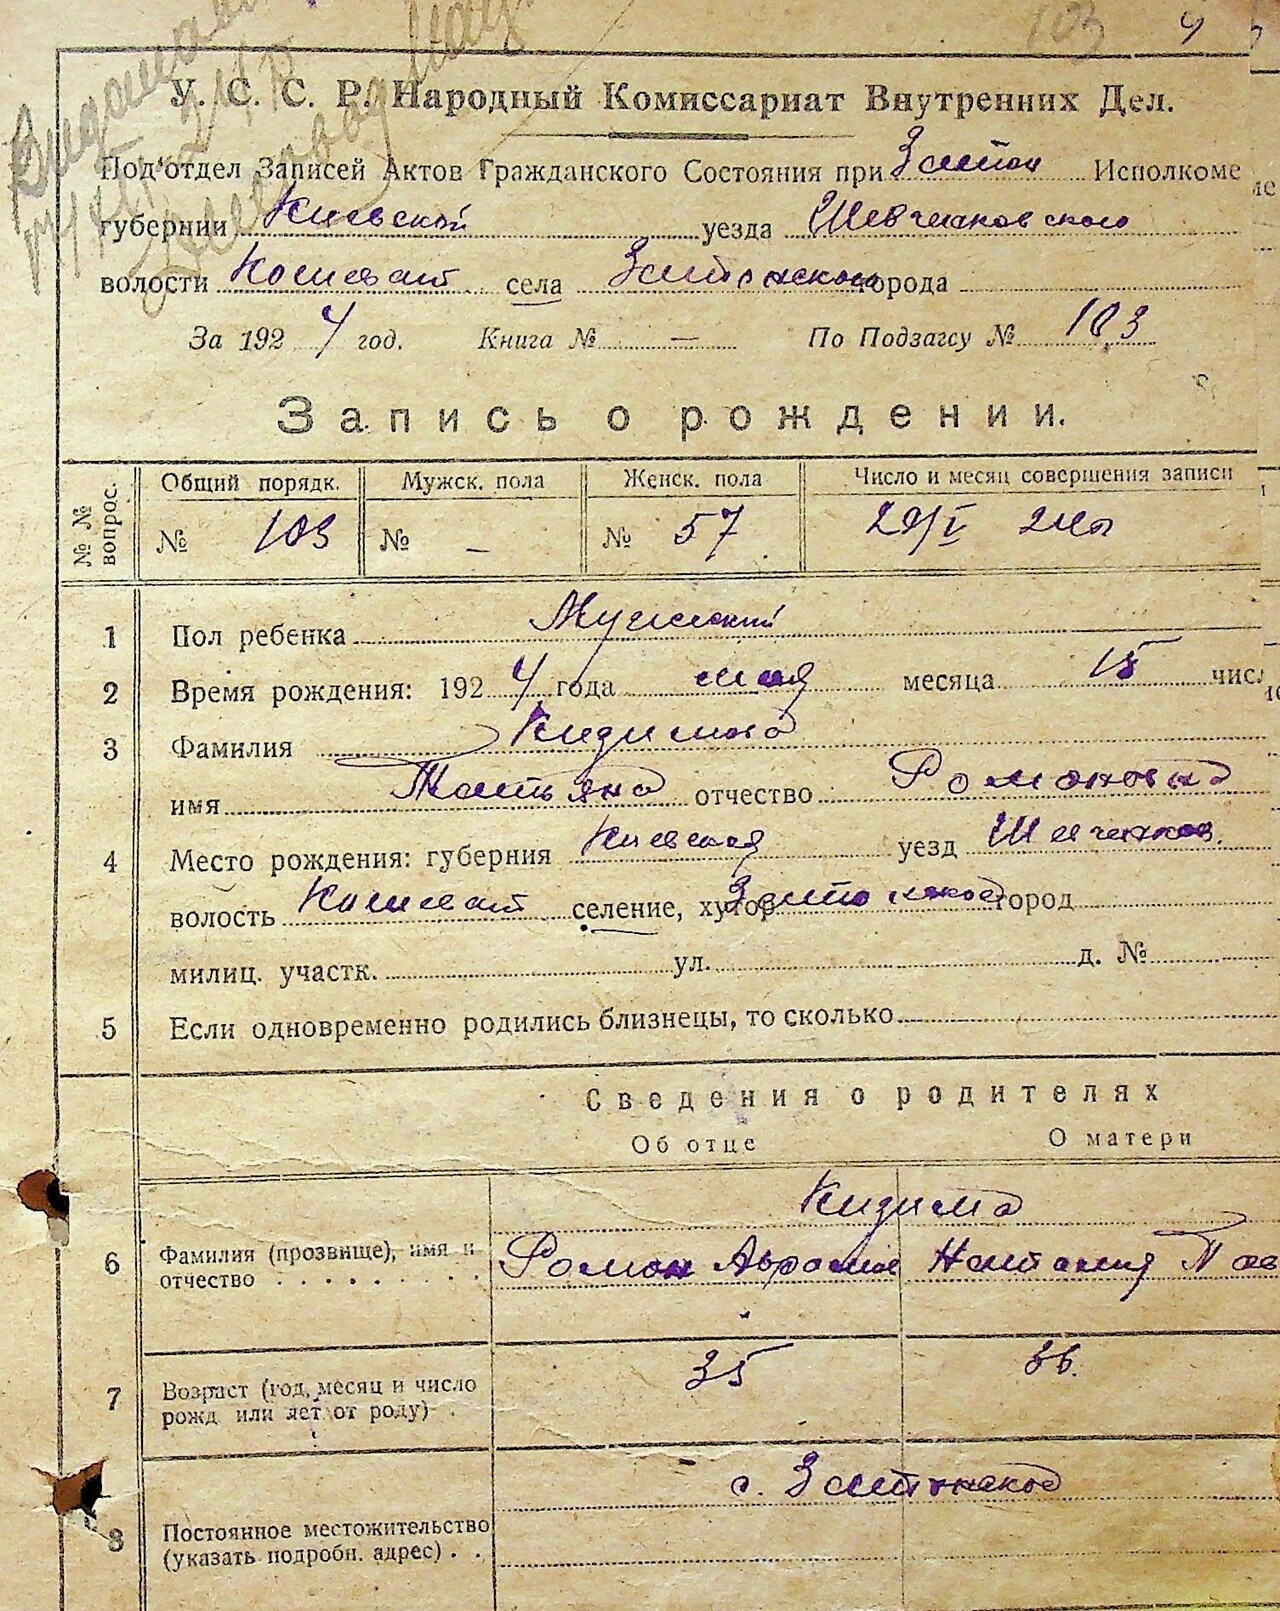 103 4
У. С. С. Р. Народный Комиссариат Внутренних Дел.
Под'отдел Записей Актов Гражданского Состояния при Исполкоме
губернии Киевской уезда Шевченковского
волости села города
За 1924 год. Книга № — По Подзагсу № 103
Запись о рождении.
№ № вопрос. Общий порядк. Мужск. пола Женск. пола Число и месяц совершения записи
№ 103 № – № 57
1 Пол ребенка Мужский
2 Время рождения: 1924 года мая месяца 15 числ
3 Фамилия Кизимова
имя Татьяна отчество Романовна
4 Место рождения: губерния Киевская уезд Шевченков.
волость селение, хутор город
милиц. участк. ул. д. №
5 Если одновременно родились близнецы, то сколько
Сведения о родителях
Об отце О матери
Кизима
6 Фамилия (прозвище), имя и отчество Роман Аврамов Наталия Пав
7 Возраст (год, месяц и число рожд или лет от роду) 35 36.
8 Постоянное местожительство (указать подробн. адрес) с.